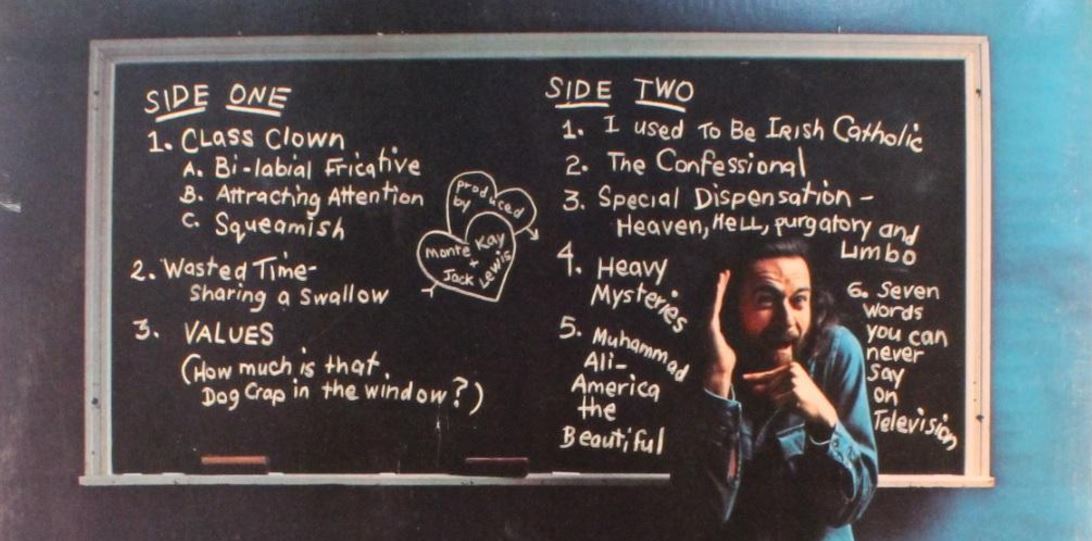 SIDE ONE
1. CLass CLown
A. Bi-labial Fricative
B. Attracting Attention
C. Squeamish
2. Wasted Time-
Sharing a Swallow
3. VALUES
(How much is that
Dog Crap in the window?)
produced
by
Monte Kay
+
Jack Lewis
SIDE TWO
1. I used To Be IRish Catholic
2. The Confessional
3. Special Dispensation -
Heaven, HeLL, purgatory and
Limbo
4. Heavy
Mysteries
5. Muhammad
Ali-
America
the
Beautiful
6. Seven
words
you can
never
Say
on
Television